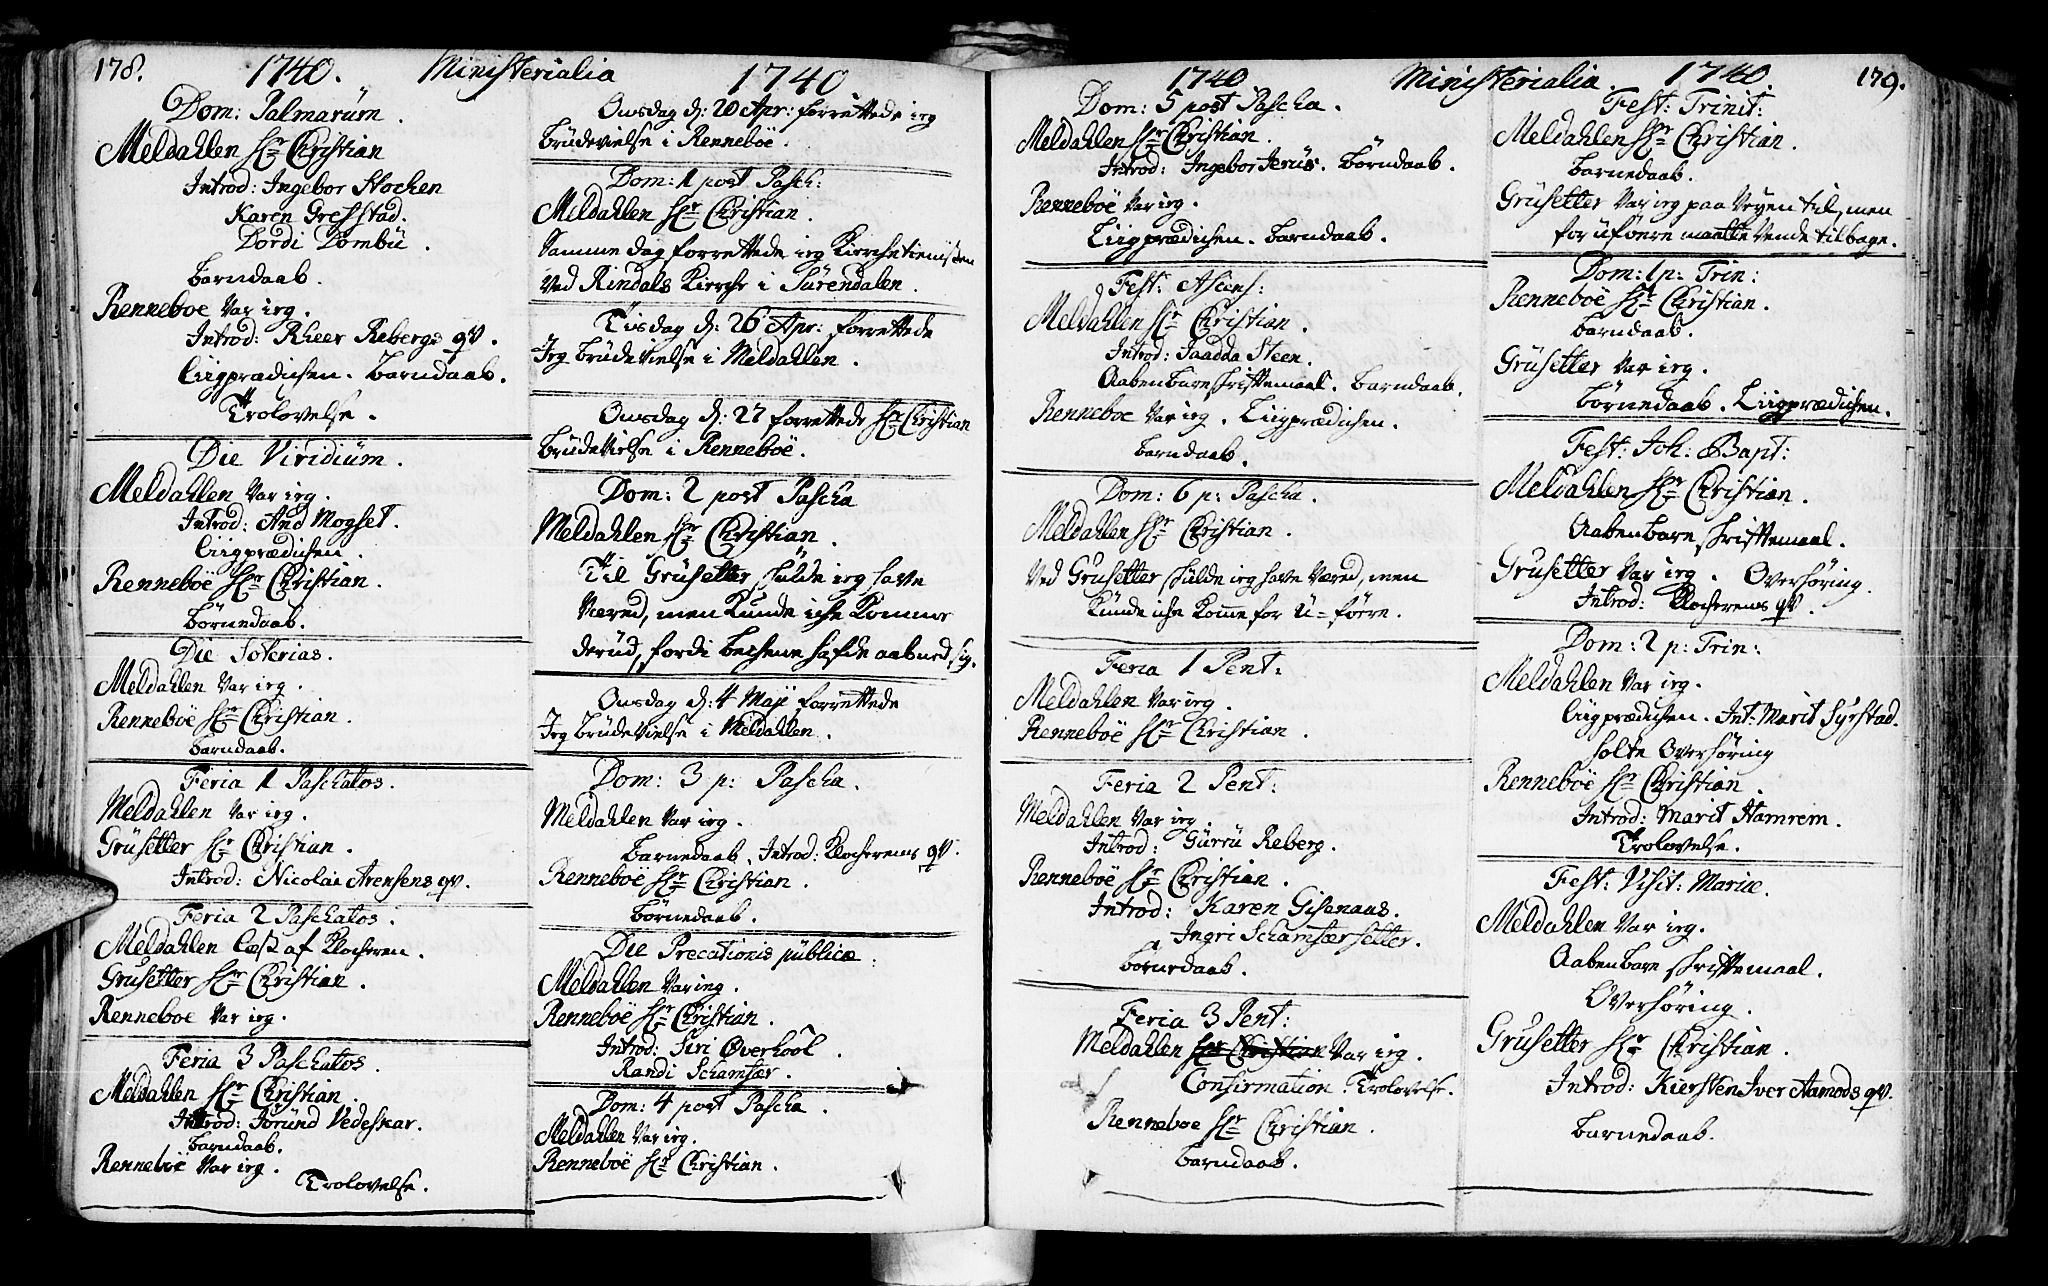 178. 1740. Ministerialia 1740
Dom: Palmarum.
Meldahlen Hr Christian
Introd: Ingebor Stochen
Karen Gresstad.
Dordi Dombu.
barndaab.
Renneboe var ieg.
Introd: Rheer Rebergs qv.
Liigprædichen. barndaab.
Trolovelse.
Die Viridium.
Meldahlen var ieg.
Introd: And Mogset.
Liigprædichen.
Renneboe Hr Christian.
börnedaab.
Die Soterias.
Meldahlen var ieg.
Renneboe Hr Christian.
barndaab.
Feria 1 Paschatos.
Meldahlen var ieg.
Grüsetter Hr Christian.
Introd: Nicolai Arensens qv.
Feria 2 Paschatos.
Meldahlen læst af Klocheren.
Grusetter Hr Christian.
Renneboe var ieg.
Feria 3 Paschatos.
Meldahlen Hr Christian.
Introd: Jörund Vedeskar.
barndaab.
Renneboe var ieg.
Trolovelse.
Onsdag d: 20 Apr: forrettede ieg
brüdevielse i Renneboe.
Dom: 1 post Pasch:
Meldahlen Hr Christian.
Samme dag forrettede ieg Kirchetienisten
ved Rindals Kirche i Sürendalen.
Tiisdag d: 26 Apr: forrettede
Jeg brüdevielse i Meldahlen.
Onsdag d: 27 forrettede Hr Christian
brüdevielse i Renneboe.
Dom: 2 post Pascha
Meldahlen Hr Christian.
Til Grüsetter skulde ieg have
været, men kunde iche komme
derud, fordi bechene hafde aabned sig.
Onsdag d: 4 Maji forrettede
Jeg brüdevielse i Meldahlen.
Dom: 3 p: Pascha.
Meldahlen var ieg.
barnedaab. Introd: Klocherens qv.
Renneboe Hr Christian.
börnedaab.
Die Precationis publicæ:
Meldahlen var ieg.
Renneboe Hr Christian.
Introd: Siri Overhool.
Randi Schamfær.
Dom: 4 post Pascha.
Meldahlen var ieg.
Renneboe Hr Christian.
1740 Ministerialia. 1740. 179.
Dom: 5 post Pascha.
Meldahlen Hr Christian.
Introd: Ingebor Jerüs. börndaab.
Renneboe var ieg.
Liigprædichen. barndaab.
Fest: Ascens:
Meldahlen Hr Christian.
Introd: Jaadda Steen.
Aabenbare skriftemaal. barndaab.
Renneboe var ieg. Liigprædichen.
barndaab.
Dom: 6 p: Pascha.
Meldahlen Hr Christian.
Ved Grusetter skulde ieg have været, men
kunde iche komme for u-förre.
Feria 1 Pent:
Meldahlen var ieg.
Renneboe Hr Christian.
Feria 2 Pent:
Meldahlen var ieg.
Introd: Gurru Reberg.
Renneboe Hr Christian.
Introd: Karen Gisenaas.
Ingri Schamfærsetter.
börnedaab.
Feria 3 Pent:
Meldahlen Hr Christian var ieg.
Confirmation. Trolovelse.
Renneboe Hr Christian.
barndaab.
Fest: Trinit:
Meldahlen Hr Christian.
barnedaab.
Grusetter var ieg paa veyen til, men
for uföere maatte vende tilbage.
Dom: 1 p: Trin:
Renneboe Hr Christian.
barndaab.
Grüsetter var ieg.
börnedaab. Liigprædichen.
Fest: Joh: Bapt:
Meldahlen Hr Christian.
Aabenbare skriftemaal.
Grusetter var ieg. Overhöring.
Introd: Klocherens qv.
Dom: 2 p: Trin:
Meldahlen var ieg.
Liigprædichen. Int: Marit Syrstad.
holte Overhöring
Renneboe Hr Christian.
Introd: Marit Hamrem.
Trolovelse.
Fest: Visit: Mariæ.
Meldahlen var ieg.
Aabenbare skriftemaal.
Overhöring.
Grusetter Hr Christian.
Introd: Kiersten Iver Aamods qv.
barnedaab.